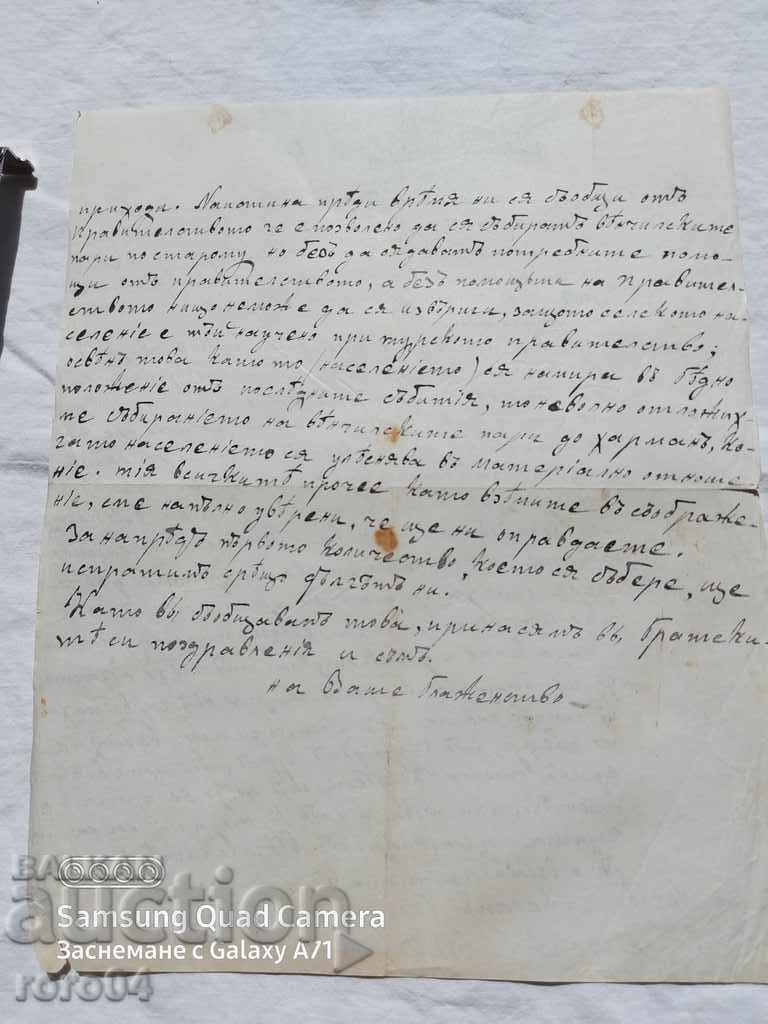 приходи. Напоона прѣди врѣмя ни ся съобщи отъ
Правителството че е позволено да ся събиратъ вѣнчилските
пари по старому но безъ да ся даватъ потребните помо-
щи отъ правителството, а безъ помощьта на Правител-
ството нищо неможе да ся извърши, защото селското на-
селеніе е тъй научено при турското правителство;
освѣнъ това като то (населеніето) ся намира въ бѣдно
положеніе отъ послѣдните събитія, то неволно отложих-
ме събираніето на вѣнчилските пари до харманъ, ко-
гато населеніето ся улѣснява въ матеріално отноше-
ніе. тія всичкитѣ прочее като взѣмите въ съображе-
ніе, сме напълно увѣрени, че ще ни оправдаете.
Занапрѣдъ първото количество което ся събере, ще
испратимъ срѣщо дългътъ ни.
Като вы съобщавамъ това, принасямъ вы братски-
тѣ си поздравленія и съмъ.
на Ваше Блаженство
БАЛКАН
auction
Samsung Quad Camera
Заснемане с Galaxy A71
roro04